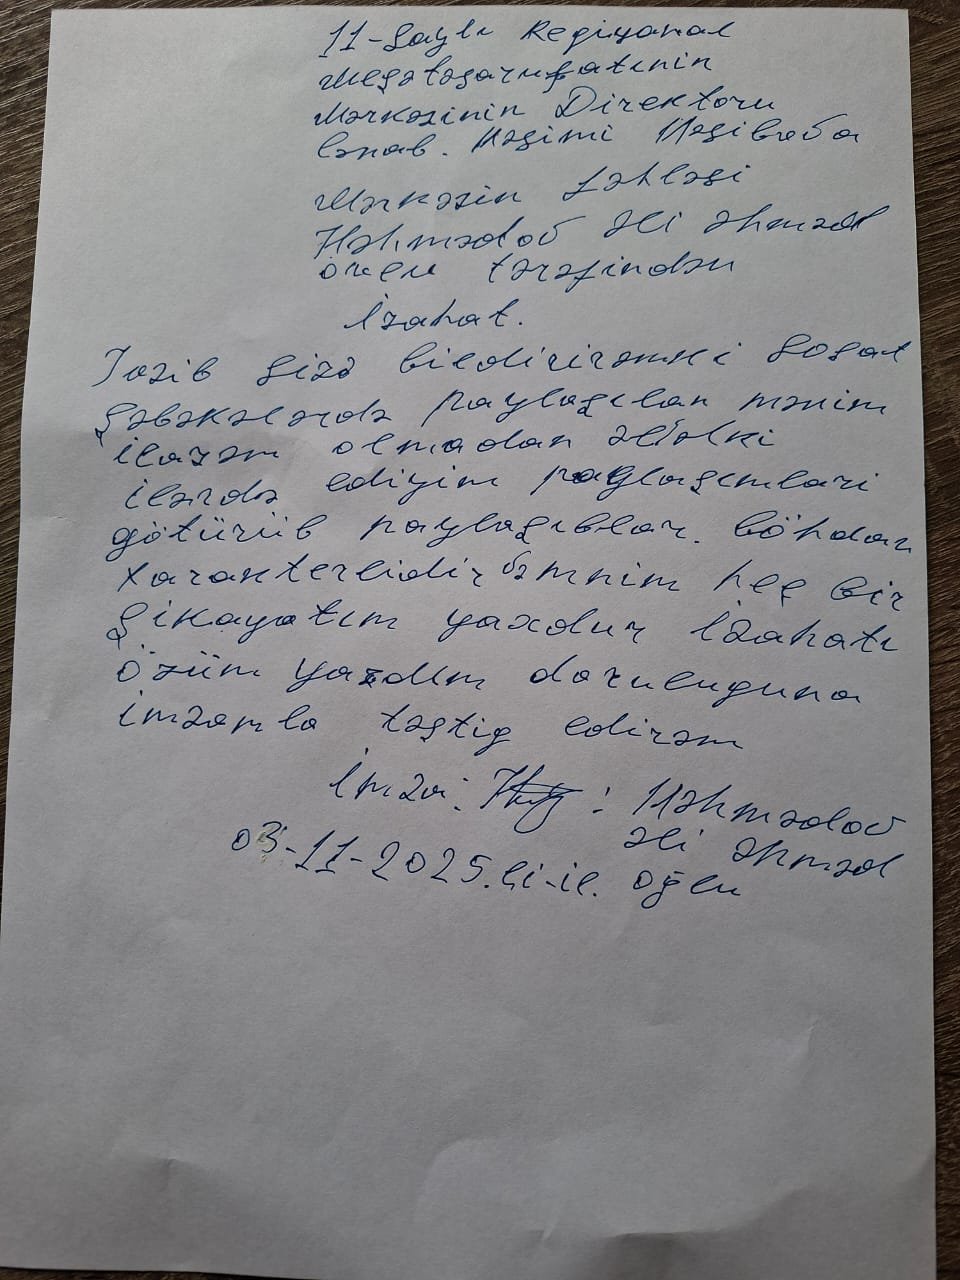 11-Saylı Regiyonal
Meşətəsərrufatının
Mərkəzinin Direktoru
Cənab. Həşimi Həsibova
Mərkəzin fəhləsi
Məhmədov Əli Əhməd
oğlu tərəfindən
İzahat.
Yazıb Sizə bildirirəmki Sosal
Şəbəkələrdə paylaşılan mənim
icazəm olmadan əvəlki
ilərdə ediyim paylaşımları
götürüb paylaşıblar. Böhdan
xarakterlidir mənim heç bir
Şikayətım yaxdur İzahatı
özüm yazdım doruluguna
imzamla təstig edirəm
İmza: : Məhmədov
Əli Əhməd
03-11-2025.ci-il. oğlu